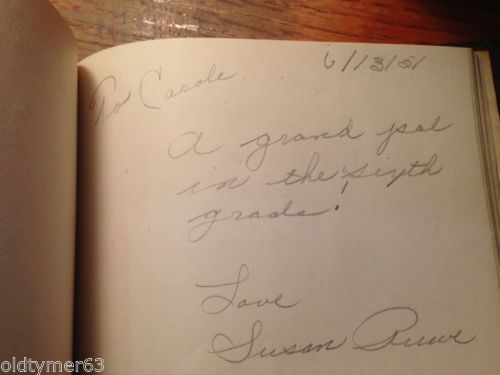 To Carole
6/13/51
A grand pal
in the sixth
grade!
Love
Susan
oldtymer63